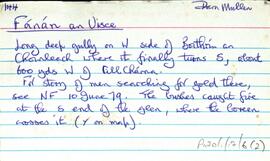 Fánán an Uisce
Long deep gully on W side of Boithrín an
Choinleach where it finally turns S, about
600 yds W of Cill Charna.
For story of men searching for gold there,
see NF 10 June 79. The bushes caught fire
at the S end of the glen, where the boreen
crosses it (Y on map).